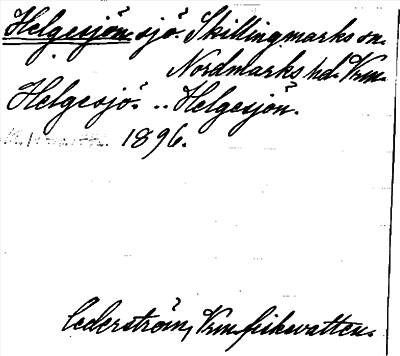 Helgesjön sjö. Skillingmarks sn.
Nordmarks hd. Vrm.
Helgesjö. .. Helgesjön.
1896.
Cederström, Vrm. fiskevatten.